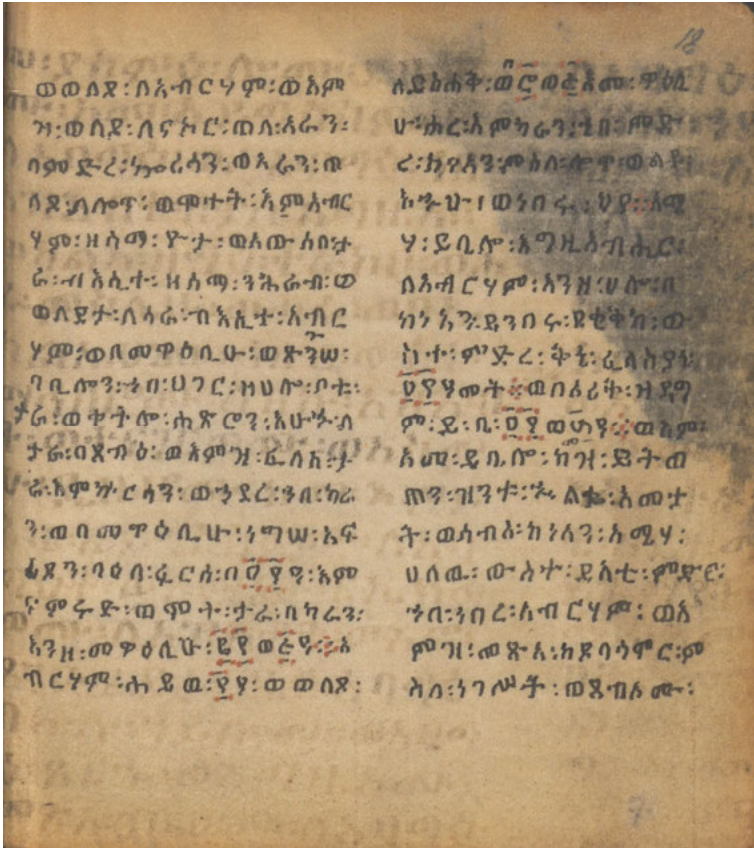 ወወለደ፡ በአብርሃም፡ ወእም
ዝ፡ ወለደ፡ ለናኮር፡ ወለ አራን፡
ባምድረ፡ ሳን፡ ወአራን፡ ወ
ለደ፡ ለሎጥ፡ ወሞተት፡ እምአብር
ሃም፡ ዘስማ፡ ዮታ፡ ወአውሰበ፡ ታ
ራ፡ ብእሲተ፡ ዘስማ፡ ወ
ወለደታ፡ ለሳራ፡ ብእሲተ፡ አብር
ሃም፡ ወበመዋዕሊሁ፡ ወጽንሠ፡
ባቢሎን፡ ኀበ፡ ሀገር፡ ዘሀሎ፡ ቦቱ፡
ታራ፡ ወቀተሎ፡ ሐጽሮን፡ እሁኁ፡ ለ
ታራ፡ በጸብዕ፡ ወእምዝ፡ ፈለሰ፡ ታ
ራ፡ እምኵርሳን፡ ወኃደረ፡ ኀበ፡ ካራ
ን፡ ወበመዋዕሊሁ፡ ነግሠ፡ አፍ
ሪደን፡ ባዕለ፡ ፈርስ፡ በ፭፻ዓ፡ እም
ድ፡ ወሞት፡ ታራ፡ በካራን፡
እንዘ፡ መዋዕሊሁ፡ ፪፻ወ፭ዓ፡ ፡ አ
ብርሃም፡ ሐይዉ፡ ፻ሃ፡ ወወለደ፡
18
ለይስሐቅ፡ ዋዕሊ
ሁ፡ ሐረ፡ እምካራን፡ ኀበ፡ ምድ
ረ፡ ከናአን፡ ምስለ፡ ሎጥ፡ ወልደ፡
እኁሁ፡ ወነበሩ፡ ህየ፡ እሚ
ሃ፡ ይቢሎ፡ እግዚአብሔር፡
በአብርሃም፡ እንዘ፡ ሀሎ፡ በ
ከነአን፡ ይነበሩ፡ ደቂቅከ፡ ው
ስተ፡ ምድረ፡ ፈላስያ
፬፻ሃመት፡ ወበሪት፡ ዝደግ
ም፡ ይ፡ ቢ፡ ፬፻ወ፴ዓ፡ ወእም፡
አመ፡ ይቢሎ፡ ከዝ፡ ይትወ
ጠን፡ ዝንቱ፡ ልቈ፡ አመታ
ት፡ ወሰብአ፡ ከነአን፡ አሚሃ፡
ሀለዉ፡ ውስተ፡ ይእቲ፡ ምድር፡
ኀበ፡ ነበረ፡ አብርሃም፡ ወእ
ምዝ፡ መጽአ፡ ከደባሳሞር፡ ም
ስለ፡ ነገሥት፡ ወጸብእሙ፡